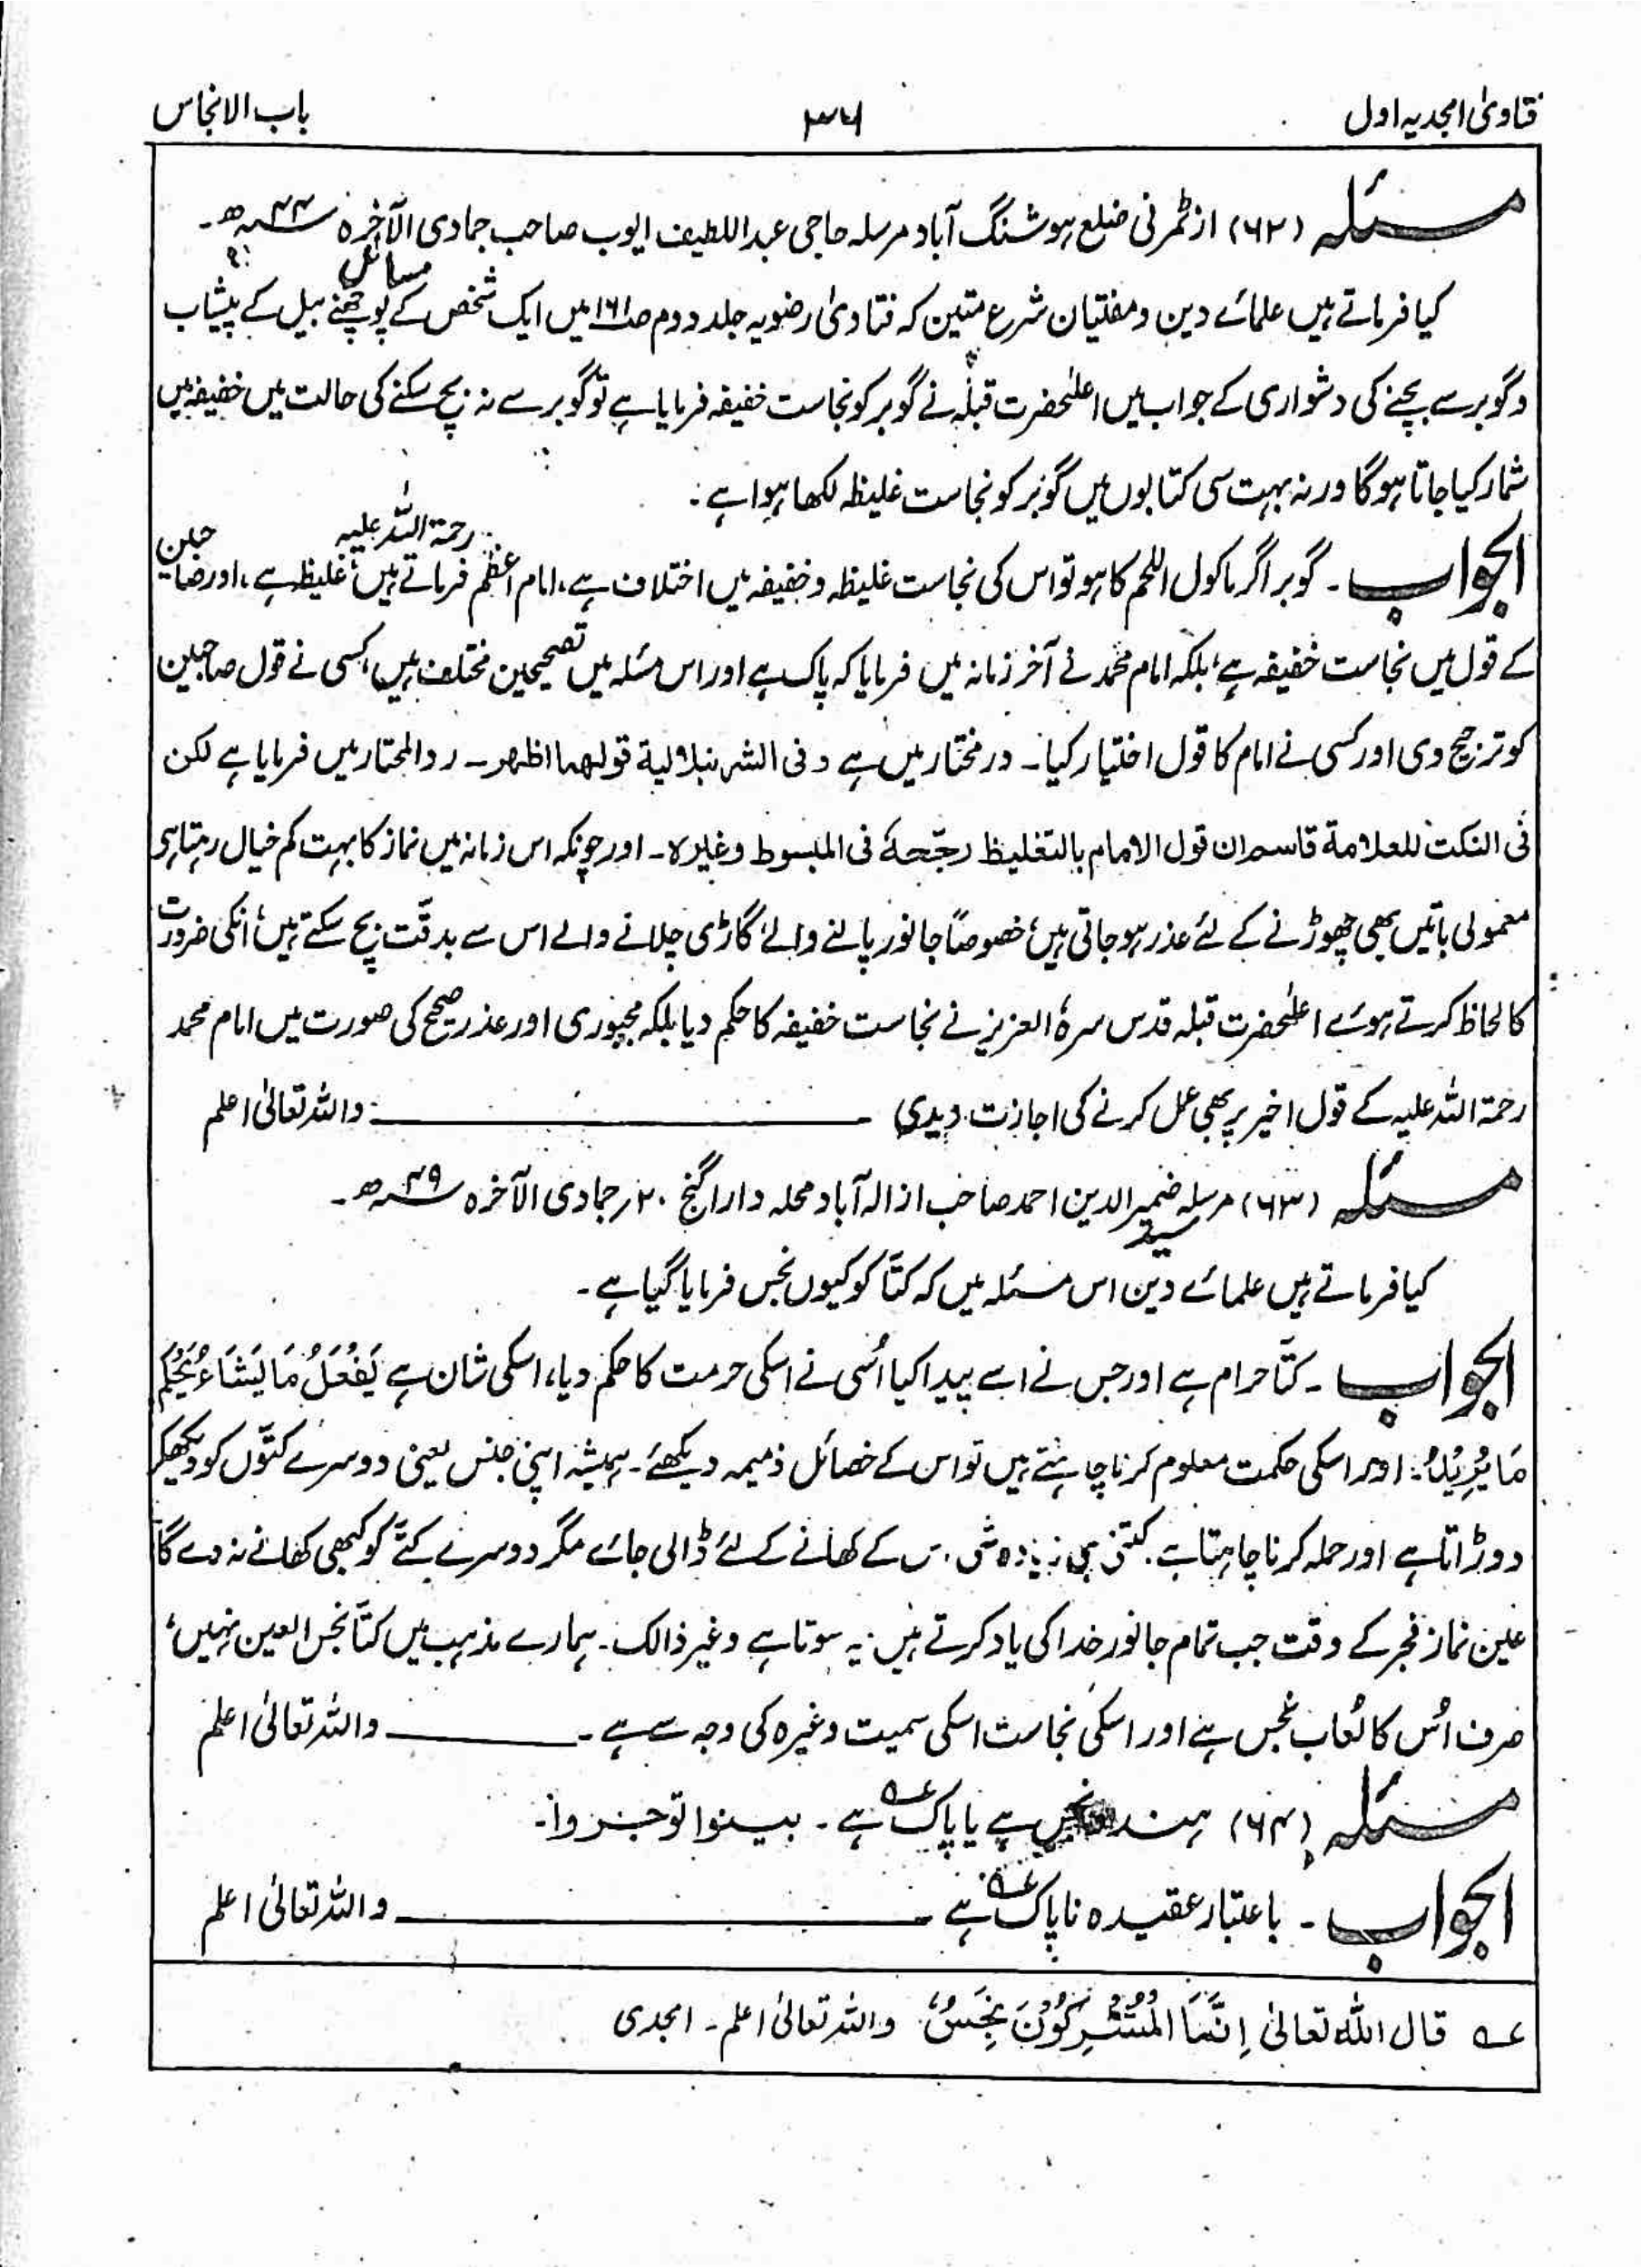 فتاویٰ امجدیہ اول
۳۶
باب الانجاس
مسئلہ (۶۲) از ٹمرنی ضلع ہوشنگ آباد مرسلہ حاجی عبداللطیف ایوب صاحب جمادی الآخرہ ۴۴ھ۔
کیا فرماتے ہیں علمائے دین و مفتیان شرع متین کہ فتاویٰ رضویہ جلد دوم ص۱۶۱ میں ایک شخص کے مسائل پوچھنے بیل کے پیشاب
و گوبر سے بچنے کی دشواری کے جواب میں اعلیٰحضرت قبلہ نے گوبر کو نجاست خفیفہ فرمایا ہے تو گوبر سے نہ بچ سکنے کی حالت میں خفیفہ میں
شمار کیا جاتا ہوگا ورنہ بہت سی کتابوں میں گوبر کو نجاست غلیظہ لکھا ہوا ہے۔
الجواب۔ گوبر اگر ماکول اللحم کا ہو تو اس کی نجاست غلیظہ و خفیفہ میں اختلاف ہے، امام اعظم رحمۃ اللہ علیہ فرماتے ہیں، غلیظ ہے، اور صاحبین
کے قول میں نجاست خفیفہ ہے، بلکہ امام محمد نے آخر زمانہ میں فرمایا کہ پاک ہے اور اس مسئلہ میں تصحیحین مختلف ہیں، کسی نے قول صاحبین
کو ترجیح دی اور کسی نے امام کا قول اختیار کیا۔ درمختار میں ہے و فی الشرنبلالیۃ قولهما اظهر۔ ردالمحتار میں فرمایا ہے لکن
فی النکت للعلامۃ قاسم ان قول الامام بالتغلیظ رجّحہٗ فی المبسوط وغیرہ۔ اور چونکہ اس زمانہ میں نماز کا بہت کم خیال رہتا ہی
معمولی باتیں بھی چھوڑنے کے لئے عذر ہو جاتی ہیں، خصوصاً جانور پالنے والے، گاڑی چلانے والے اس سے بدقّت بچ سکتے ہیں، انکی ضرورت
کا لحاظ کرتے ہوئے اعلیٰحضرت قبلہ قدس سرہٗ العزیز نے نجاست خفیفہ کا حکم دیا بلکہ مجبوری اور عذر صحیح کی صورت میں امام محمد
رحمۃ اللہ علیہ کے قول اخیر پر بھی عمل کرنے کی اجازت دیدی ۔ واللہ تعالیٰ اعلم
مسئلہ (۶۳) مرسلہ سید ضمیر الدین احمد صاحب از الہ آباد محلہ دارا گنج ۲۰ر جمادی الآخرہ ۴۹ھ۔
کیا فرماتے ہیں علمائے دین اس مسئلہ میں کہ کتّا کو کیوں نجس فرمایا گیا ہے۔
الجواب۔ کتّا حرام ہے اور جس نے اسے پیدا کیا اُسی نے اسکی حرمت کا حکم دیا، اسکی شان ہے یَفْعَلُ مَا یَشَاءُ یَحْکُمُ
مَا یُرِیْدُ۔ اور اسکی حکمت معلوم کرنا چاہتے ہیں تو اس کے خصائل ذمیمہ دیکھئے۔ ہمیشہ اپنی جنس یعنی دوسرے کتّوں کو دیکھکر
دوڑاتا ہے اور حملہ کرنا چاہتا ہے۔ کتنی ہی زیادہ شی اس کے کھانے کے لئے ڈالی جائے مگر دوسرے کتّے کو کبھی کھانے نہ دے گا
عین نماز فجر کے وقت جب تمام جانور خدا کی یاد کرتے ہیں یہ سوتا ہے وغیر ذالک۔ ہمارے مذہب میں کتّا نجس العین نہیں،
صرف اُس کا لُعاب نجس ہے اور اسکی نجاست اسکی سمیت وغیرہ کی وجہ سے ہے۔ واللہ تعالیٰ اعلم
مسئلہ (۶۴) ہندو نجس ہے یا پاک ؎ ہے۔ بینوا توجروا۔
الجواب۔ باعتبار عقیدہ ناپاک ؎ ہے۔ واللہ تعالیٰ اعلم
؎ قال اللہ تعالیٰ اِنَّمَا الْمُشْرِکُوْنَ نَجَسٌ، واللہ تعالیٰ اعلم۔ امجدی